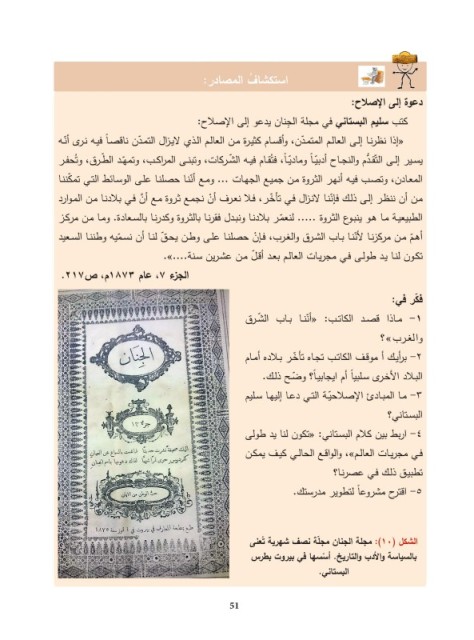 استكشاف المصادر:
دعوة إلى الإصلاح:
كتب سليم البستاني في مجلة الجنان يدعو إلى الإصلاح:
«إذا نظرنا إلى العالم المتمدّن، وأقسام كثيرة من العالم الذي لايزال التمدّن ناقصاً فيه نرى أنّه
يسير إلى التقدُّم والنجاح أدبيّاً وماديّاً، فتُقام فيه الشّركات، وتبنى المراكب، وتمهّد الطّرق، وتُحفر
المعادن، وتصب فيه أنهر الثروة من جميع الجهات ... ومع أنّنا حصلنا على الوسائط التي تمكّننا
من أن ننظر إلى ذلك فإنّنا لانزال في تأخّر، فلا نعرف أنْ نجمع ثروة مع أنّ في بلادنا من الموارد
الطبيعية ما هو ينبوع الثروة ..... لنعمّر بلادنا ونبدل فقرنا بالثروة وكدرنا بالسعادة. وما من مركز
أهمّ من مركزنا لأنّنا باب الشرق والغرب، فإنْ حصلنا على وطن يحقّ لنا أن نسمّيه وطننا السعيد
تكون لنا يد طولى في مجريات العالم بعد أقلّ من عشرين سنة....».
الجزء ٧، عام ١٨٧٣م، ص٢١٧.
فكّر في:
١- ماذا قصد الكاتب: «أنّنا باب الشّرق
والغرب»؟
٢- برأيك أ موقف الكاتب تجاه تأخّر بلاده أمام
البلاد الأخرى سلبياً أم ايجابياً؟ وضّح ذلك.
٣- ما المبادئ الإصلاحيّة التي دعا إليها سليم
البستاني؟
٤- اربط بين كلام البستاني: «تكون لنا يد طولى
في مجريات العالم»، والواقع الحالي كيف يمكن
تطبيق ذلك في عصرنا؟
٥- اقترح مشروعاً لتطوير مدرستك.
الجنان
الشكل (١٠): مجلة الجنان مجلّة نصف شهرية تُعنى
بالسياسة والأدب والتاريخ. أسّسها في بيروت بطرس
البستاني.
51